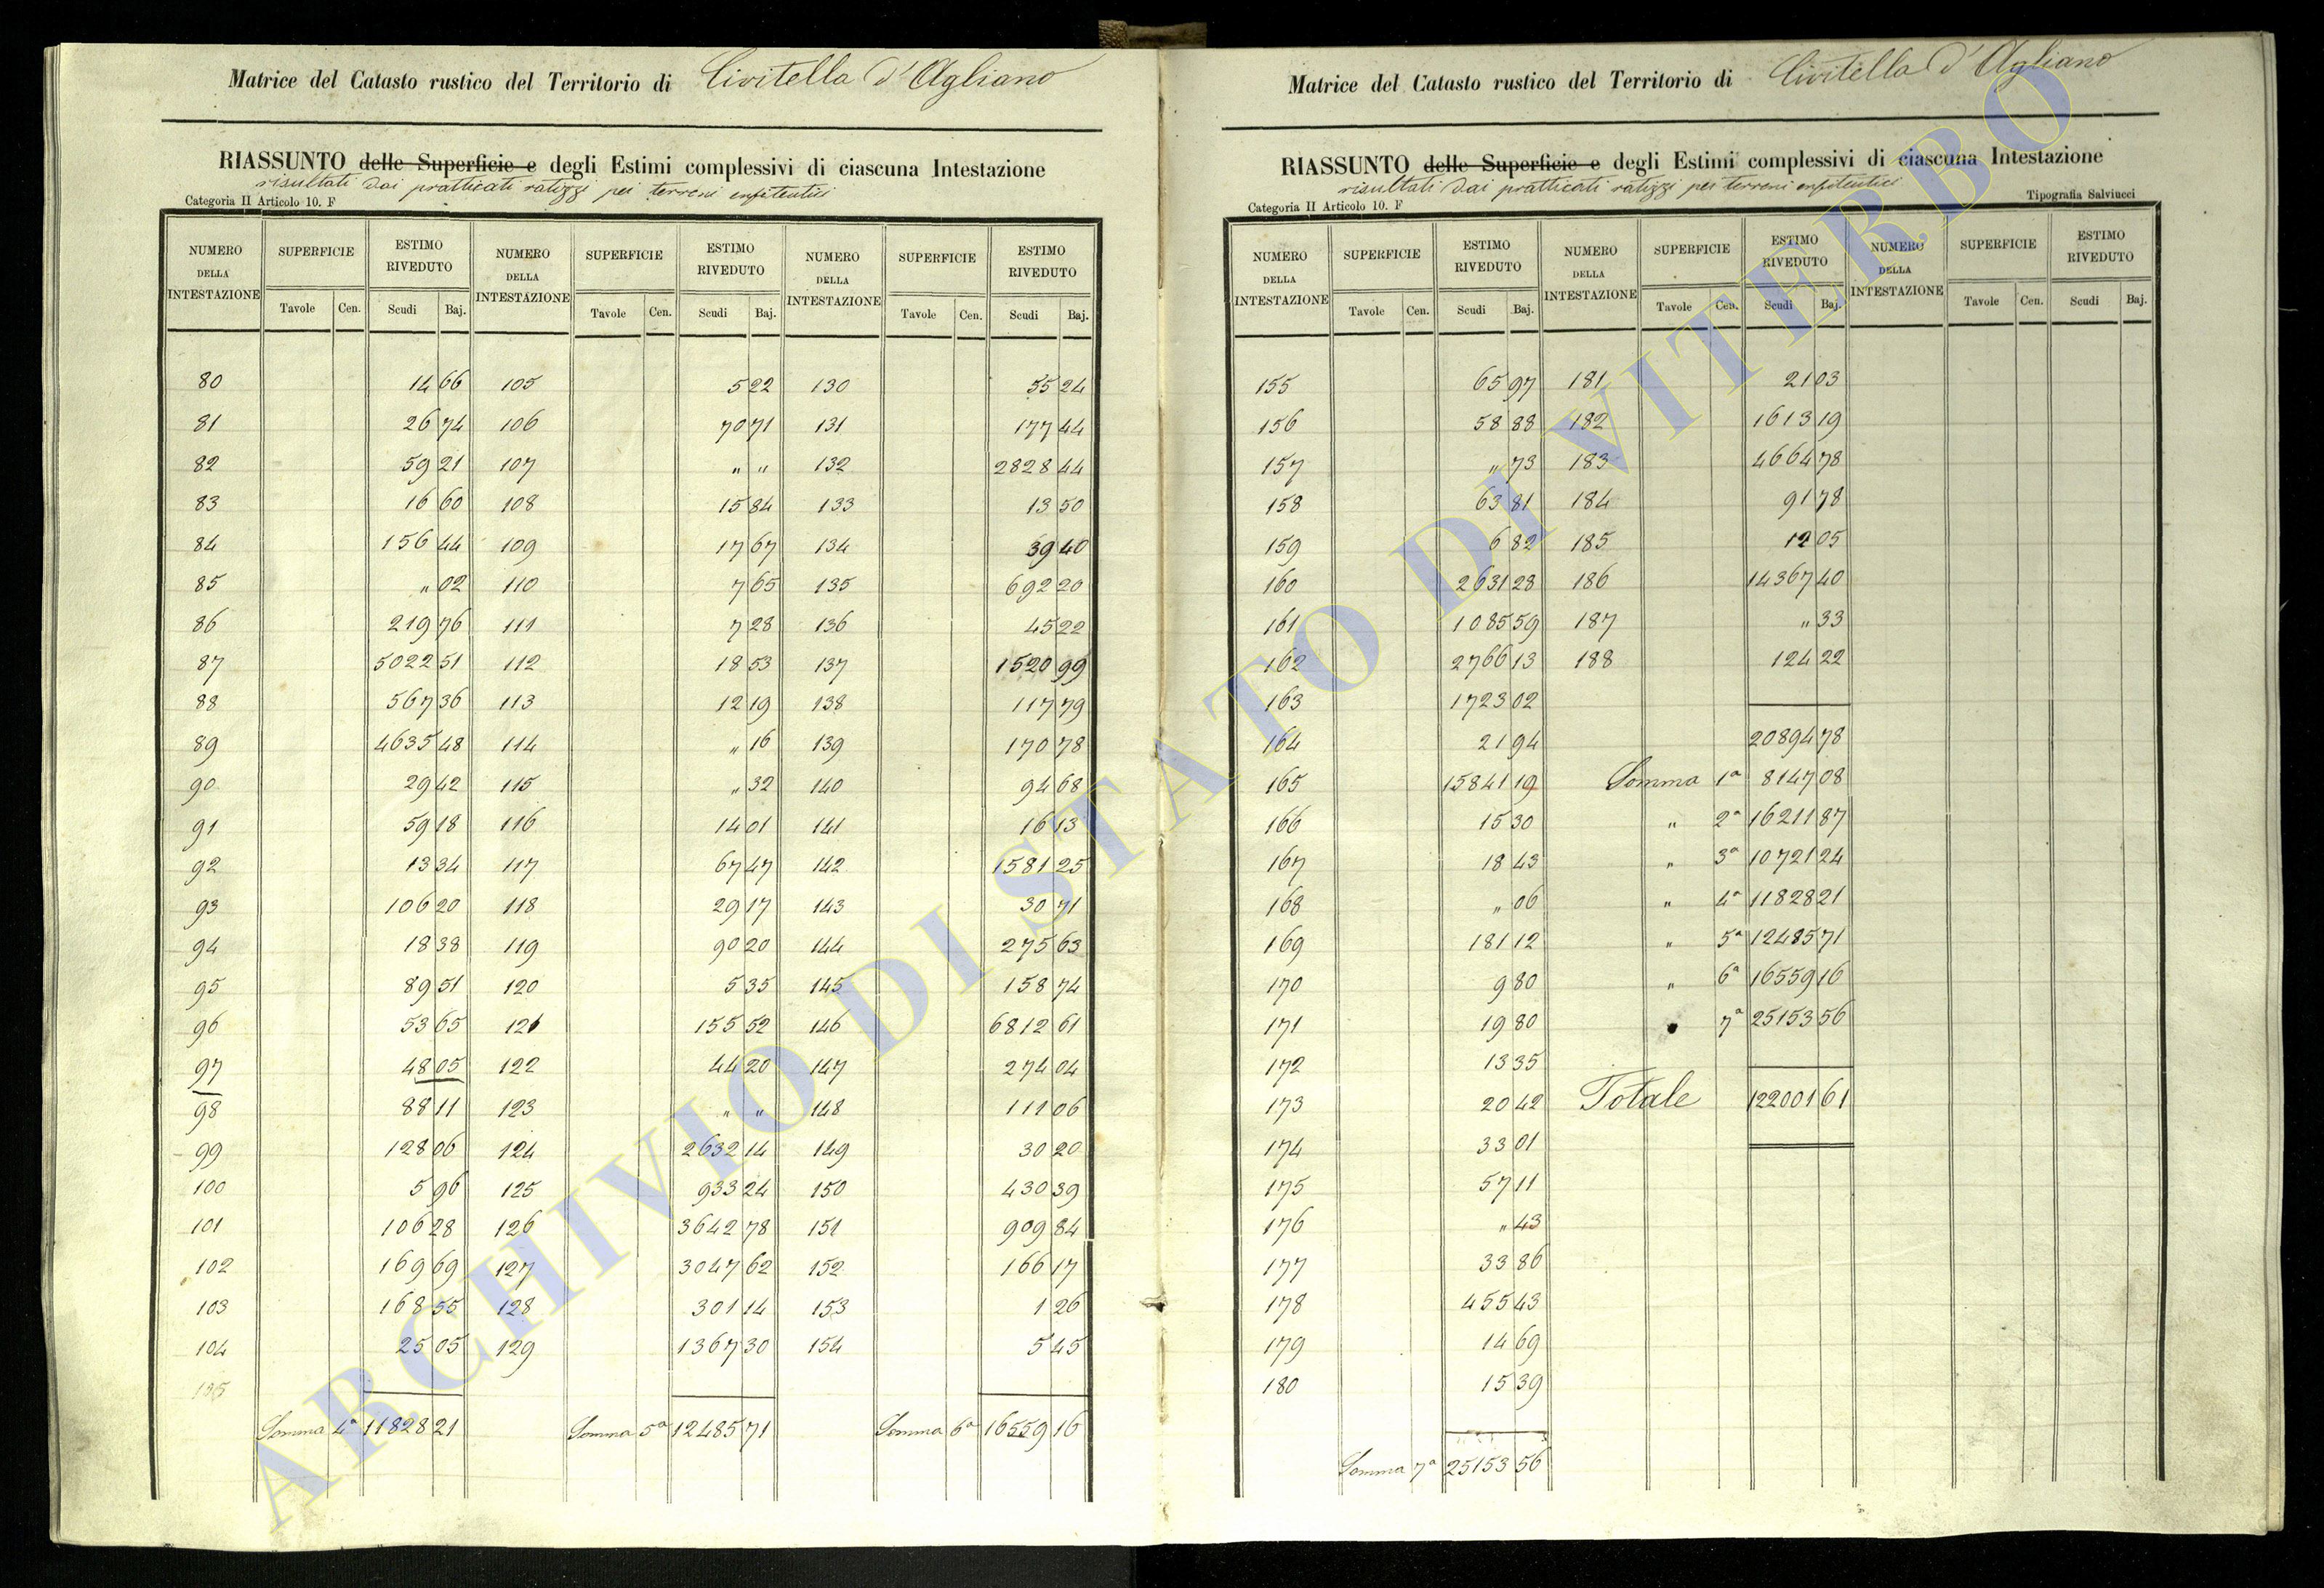 Matrice del Catasto rustico del Territorio di Civitella d'Agliano
RIASSUNTO delle Superficie e degli Estimi complessivi di ciascuna Intestazione
risultati dai pratticati ratizzi pei terreni enfiteutici
Categoria II Articolo 10. F
NUMERO DELLA INTESTAZIONE SUPERFICIE ESTIMO RIVEDUTO NUMERO DELLA INTESTAZIONE SUPERFICIE ESTIMO RIVEDUTO NUMERO DELLA INTESTAZIONE SUPERFICIE ESTIMO RIVEDUTO
Tavole Cen. Scudi Baj. Tavole Cen. Scudi Baj. Tavole Cen. Scudi Baj.
80 14 66 105 5 22 130 55 24
81 26 74 106 70 71 131 177 44
82 59 21 107 " " 132 2828 44
83 16 60 108 15 84 133 13 50
84 156 44 109 17 67 134 39 40
85 " 02 110 7 65 135 692 20
86 219 76 111 7 28 136 45 22
87 5022 51 112 18 53 137 1520 99
88 567 36 113 12 19 138 117 79
89 4635 48 114 " 16 139 170 78
90 29 42 115 " 32 140 94 68
91 59 18 116 14 01 141 16 13
92 13 34 117 67 47 142 1581 25
93 106 20 118 29 17 143 30 71
94 18 38 119 90 20 144 275 63
95 89 51 120 5 35 145 158 74
96 53 65 121 155 52 146 6812 61
97 48 05 122 44 20 147 274 04
98 88 11 123 " " 148 111 06
99 128 06 124 2632 14 149 30 20
100 5 96 125 933 24 150 430 39
101 106 28 126 3642 78 151 909 84
102 169 69 127 3047 62 152 166 17
103 168 55 128 301 14 153 1 26
104 25 05 129 1367 30 154 5 45
135
Somma 4ª 11828 21 Somma 5ª 12485 71 Somma 6ª 16559 16
Matrice del Catasto rustico del Territorio di Civitella d'Agliano
RIASSUNTO delle Superficie e degli Estimi complessivi di ciascuna Intestazione
risultati dai pratticati ratizzi pei terreni enfiteutici
Categoria II Articolo 10. F Tipografia Salviucci
NUMERO DELLA INTESTAZIONE SUPERFICIE ESTIMO RIVEDUTO NUMERO DELLA INTESTAZIONE SUPERFICIE ESTIMO RIVEDUTO NUMERO DELLA INTESTAZIONE SUPERFICIE ESTIMO RIVEDUTO
Tavole Cen. Scudi Baj. Tavole Cen. Scudi Baj. Tavole Cen. Scudi Baj.
155 65 97 181 21 03
156 58 88 182 1613 19
157 " 73 183 4664 78
158 63 81 184 91 78
159 6 82 185 12 05
160 2631 28 186 14367 40
161 1085 59 187 " 33
162 2766 13 188 124 22
163 1723 02
164 21 94 20894 78
165 15841 19 Somma 1ª 8147 08
166 15 30 " 2ª 16211 87
167 18 43 " 3ª 10721 24
168 " 06 " 4ª 11828 21
169 181 12 " 5ª 12485 71
170 9 80 " 6ª 16559 16
171 19 80 7ª 25153 56
172 13 35
173 20 42 Totale 122001 61
174 33 01
175 57 11
176 " 43
177 33 86
178 455 43
179 14 69
180 15 39
Somma 7ª 25153 56
ARCHIVIO DI STATO DI VITERBO